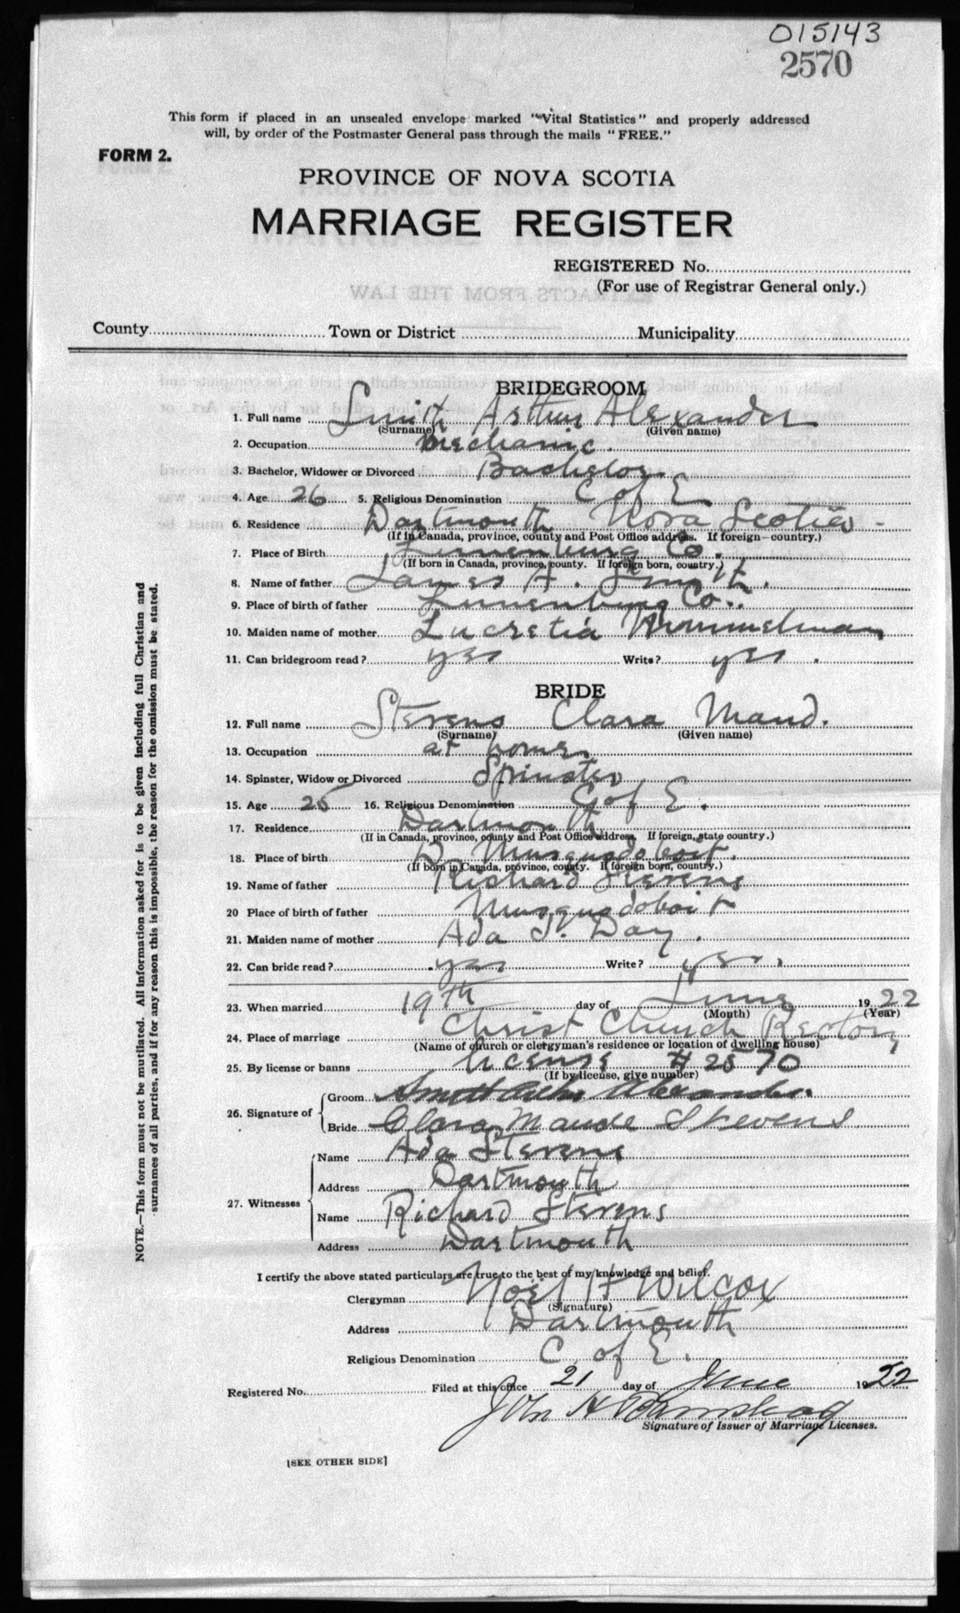 015143
2570
This form if placed in an unsealed envelope marked "Vital Statistics" and properly addressed
will, by order of the Postmaster General pass through the mails "FREE."
FORM 2.
PROVINCE OF NOVA SCOTIA
MARRIAGE REGISTER
REGISTERED No.
(For use of Registrar General only.)
EXTRACTS FROM THE LAW
County Town or District Municipality
BRIDEGROOM
1. Full name Smith Arthur Alexander
(Surname) (Given name)
2. Occupation Mechanic.
3. Bachelor, Widower or Divorced Bachelor.
4. Age 26 5. Religious Denomination C of E
6. Residence Dartmouth Nova Scotia -
(If in Canada, province, county and Post Office address. If foreign—country.)
7. Place of Birth Lunenburg Co.
(If born in Canada, province, county. If foreign born, country.)
8. Name of father James A. Smith.
9. Place of birth of father Lunenburg Co.
10. Maiden name of mother Lucretia
11. Can bridegroom read? yes Write? yes.
BRIDE
12. Full name Stevens Clara Maud.
(Surname) (Given name)
13. Occupation at home
14. Spinster, Widow or Divorced Spinster
15. Age 25 16. Religious Denomination C of E.
17. Residence Dartmouth
(If in Canada, province, county and Post Office address. If foreign, state country.)
18. Place of birth Musquodoboit.
(If born in Canada, province, county. If foreign born, country.)
19. Name of father Richard Stevens
20 Place of birth of father Musquodoboit
21. Maiden name of mother Ada J. Day.
22. Can bride read? yes Write? yes.
23. When married 19th day of June 1922
(Month) (Year)
24. Place of marriage Christ Church Rectory
(Name of church or clergyman's residence or location of dwelling house)
25. By license or banns License # 2570
(If by license, give number)
26. Signature of Groom Smith Arthur Alexander.
Bride Clara Maude Stevens
27. Witnesses Name Ada Stevens
Address Dartmouth
Name Richard Stevens
Address Dartmouth
I certify the above stated particulars are true to the best of my knowledge and belief.
Clergyman Noel H Wilcox
(Signature)
Address Dartmouth
Religious Denomination C. of E.
Registered No. Filed at this office 21 day of June 1922
John H
Signature of Issuer of Marriage Licenses.
[SEE OTHER SIDE]
NOTE.—This form must not be mutilated. All information asked for is to be given including full Christian and
surnames of all parties, and if for any reason this is impossible, the reason for the omission must be stated.